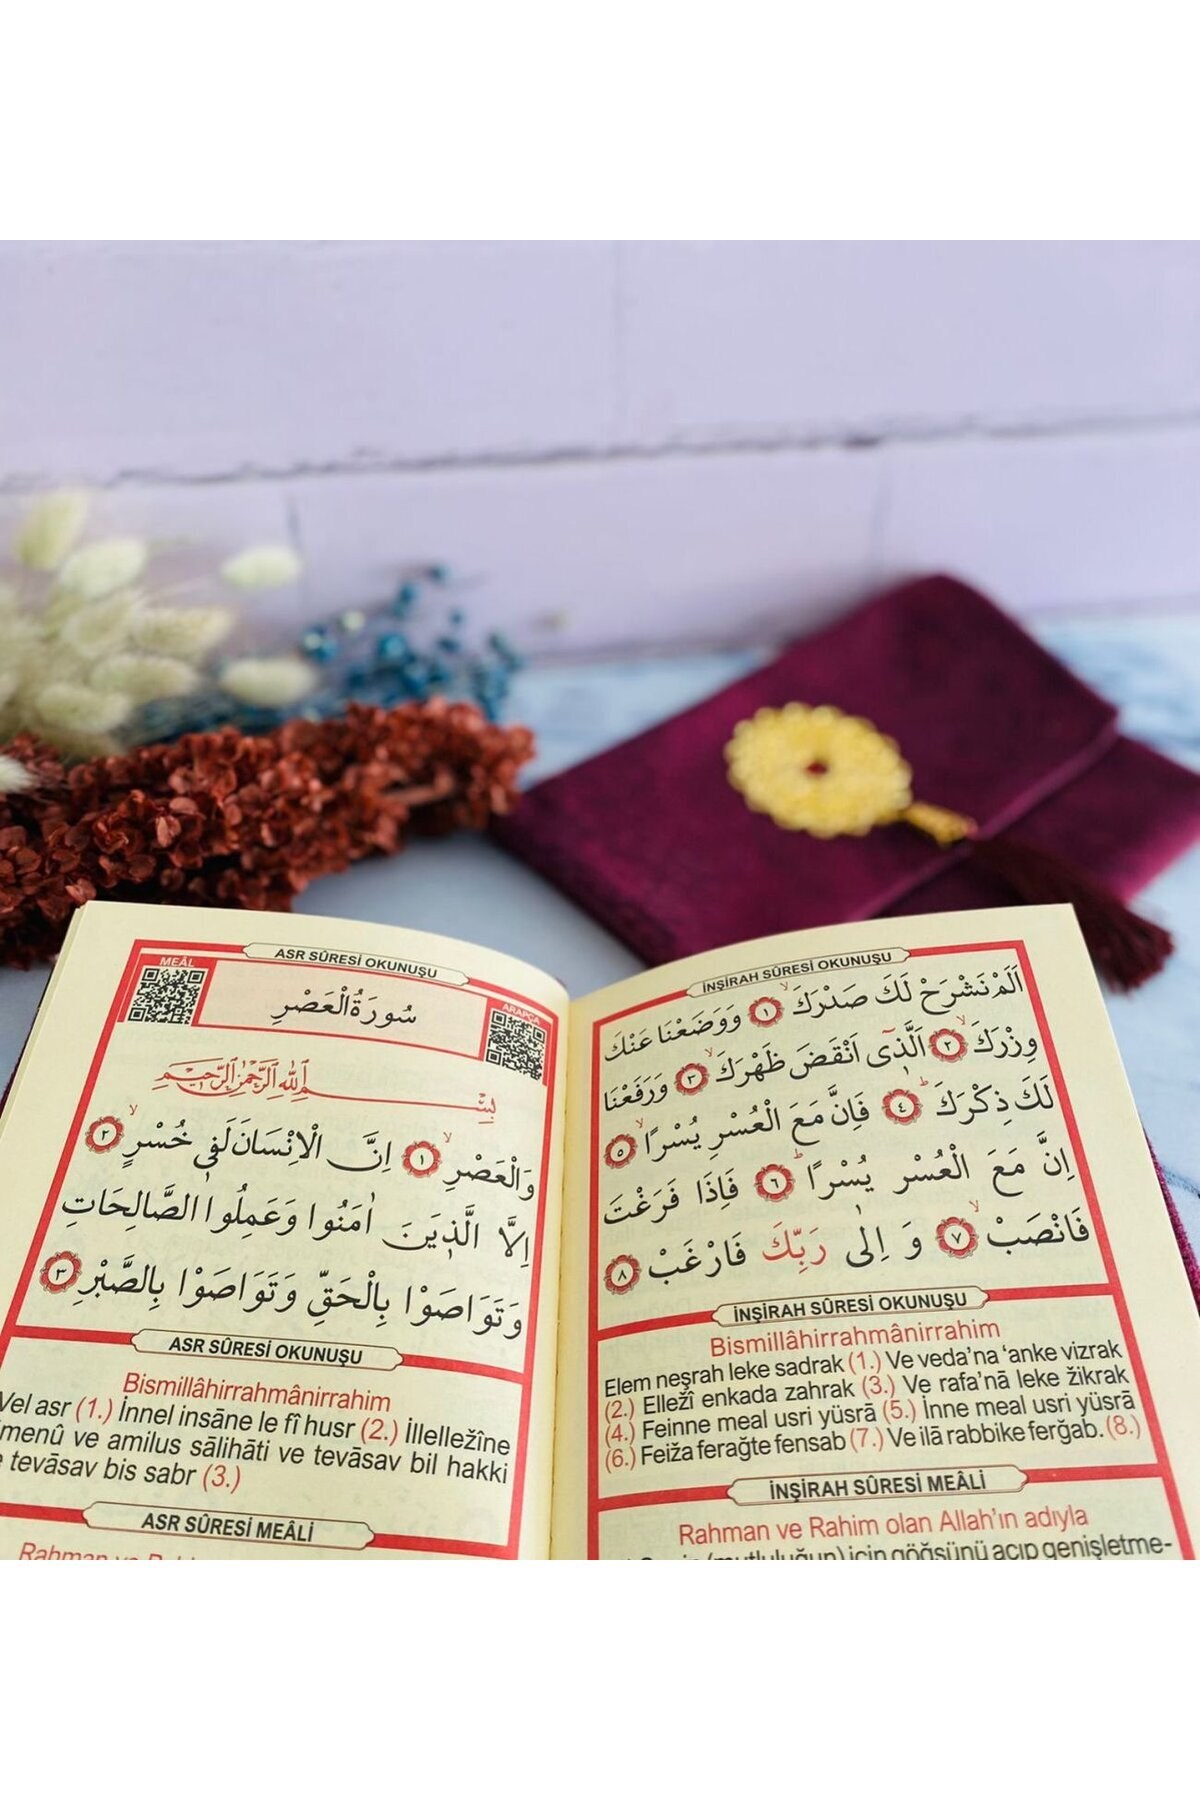 ASR SÛRESİ OKUNUŞU
MEÂL
ARAPÇA
سُورَةُ الْعَصْرِ
بِسْمِ اللهِ الرَّحْمٰنِ الرَّحِيمِ
وَالْعَصْرِۙ ﴿١﴾ اِنَّ الْاِنْسَانَ لَفٖي خُسْرٍۙ ﴿٢﴾
اِلَّا الَّذٖينَ اٰمَنُوا وَعَمِلُوا الصَّالِحَاتِ
وَتَوَاصَوْا بِالْحَقِّ وَتَوَاصَوْا بِالصَّبْرِ ﴿٣﴾
ASR SÛRESİ OKUNUŞU
Bismillâhirrahmânirrahim
Vel asr (1.) İnnel insāne le fî husr (2.) İllelležîne
menû ve amilus sālihāti ve tevāsav bil hakki
tevāsav bis sabr (3.)
ASR SÛRESİ MEÂLİ
Rahman ve
İNŞİRAH SÛRESİ OKUNUŞU
اَلَمْ نَشْرَحْ لَكَ صَدْرَكَۙ ﴿١﴾ وَوَضَعْنَا عَنْكَ
وِزْرَكَۙ ﴿٢﴾ اَلَّذٖٓى اَنْقَضَ ظَهْرَكَۙ ﴿٣﴾ وَرَفَعْنَا
لَكَ ذِكْرَكَؕ ﴿٤﴾ فَاِنَّ مَعَ الْعُسْرِ يُسْرًاۙ ﴿٥﴾
اِنَّ مَعَ الْعُسْرِ يُسْرًاؕ ﴿٦﴾ فَاِذَا فَرَغْتَ
فَانْصَبْۙ ﴿٧﴾ وَ اِلٰى رَبِّكَ فَارْغَبْ ﴿٨﴾
İNŞİRAH SÛRESİ OKUNUŞU
Bismillâhirrahmânirrahim
Elem neşrah leke sadrak (1.) Ve veda’na ‘anke vizrak
(2.) Elležî enkada zahrak (3.) Ve rafa’nā leke žikrak
(4.) Feinne meal usri yüsrā (5.) İnne meal usri yüsrā
(6.) Feiža ferağte fensab (7.) Ve ilā rabbike ferğab. (8.)
İNŞİRAH SÛRESİ MEÂLİ
Rahman ve Rahim olan Allah’ın adıyla
(mutluluğun) için göğsünü açıp genişletme-